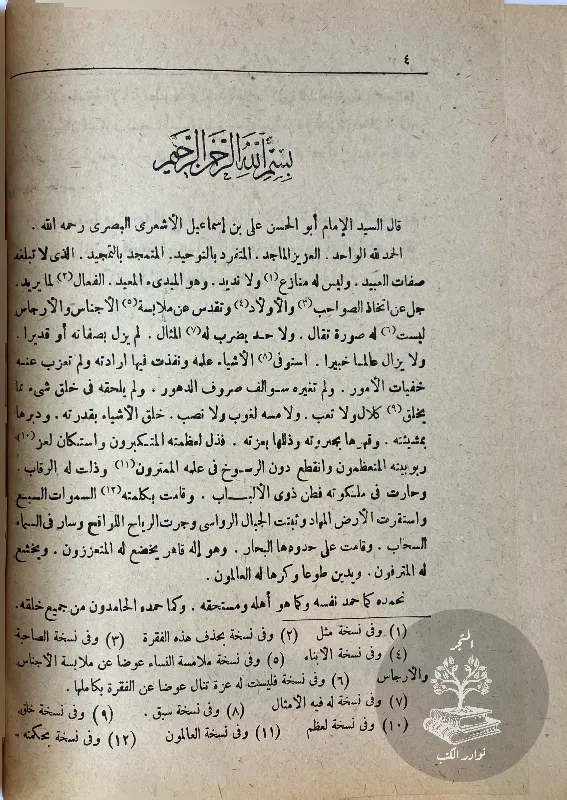 ٤
بسم الله الرحمن الرحيم
قال السيد الإمام أبو الحسن على بن إسماعيل الأشعرى البصرى رحمه الله .
الحمد لله الواحد . العزيز الماجد . المتفرد بالتوحيد . المتمجد بالتمجيد . الذى لا تبلغه
صفات العبيد . وليس له منازع (١) ولا نديد . وهو المبدىء المعيد . الفعال (٢) لما يريد .
جل عن اتخاذ الصواحب (٣) والأولاد (٤) وتقدس عن ملابسة (٥) الأجناس والأرجاس
ليست (٦) له صورة تقال . ولا حد يضرب له (٧) المثال . لم يزل بصفاته أو قديرا .
ولا يزال عالما خبيرا . استوفى (٨) الأشياء علمه ونفذت فيها ارادته ولم تعزب عنه
خفيات الأمور . ولم تغيره سوالف صروف الدهور . ولم يلحقه فى خلق شىء مما
يخلق (٩) كلال ولا تعب . ولا مسه لغوب ولا نصب . خلق الأشياء بقدرته . ودبرها
بمشيئته . وقهرها بجبروته وذللها بعزته . فذل لعظمته المتكبرون واستكان لعز (١٠)
ربوبيته المتعظمون وانقطع دون الرسوخ فى علمه الممترون (١١) وذلت له الرقاب .
وحارت فى ملكوته فطن ذوى الألباب . وقامت بكلمته (١٢) السموات السبع
واستقرت الأرض المهاد وثبتت الجبال الرواسى وجرت الرياح اللواقح وسار فى السماء
السحاب . وقامت على حدودها البحار . وهو إله قاهر يخضع له المتعززون . ويخشع
له المترفون . ويدين طوعا وكرها له العالمون .
نحمده كما حمد نفسه وكما هو أهله ومستحقه . وكما حمده الحامدون من جميع خلقه .
(١) وفى نسخة مثل (٢) وفى نسخة بحذف هذه الفقرة (٣) وفى نسخة الصاحبة
(٤) وفى نسخة الأبناء (٥) وفى نسخة ملامسة النساء عوضا عن ملابسة الأجناس
والأرجاس (٦) وفى نسخة فليست له عزة تنال عوضا عن الفقرة بكاملها .
(٧) وفى نسخة له فيه الأمثال (٨) وفى نسخة سبق . (٩) وفى نسخة خلق .
(١٠) وفى نسخة لعظم (١١) وفى نسخة العالمون (١٢) وفى نسخة بحكمته .
المتجر
نوادر الكتب